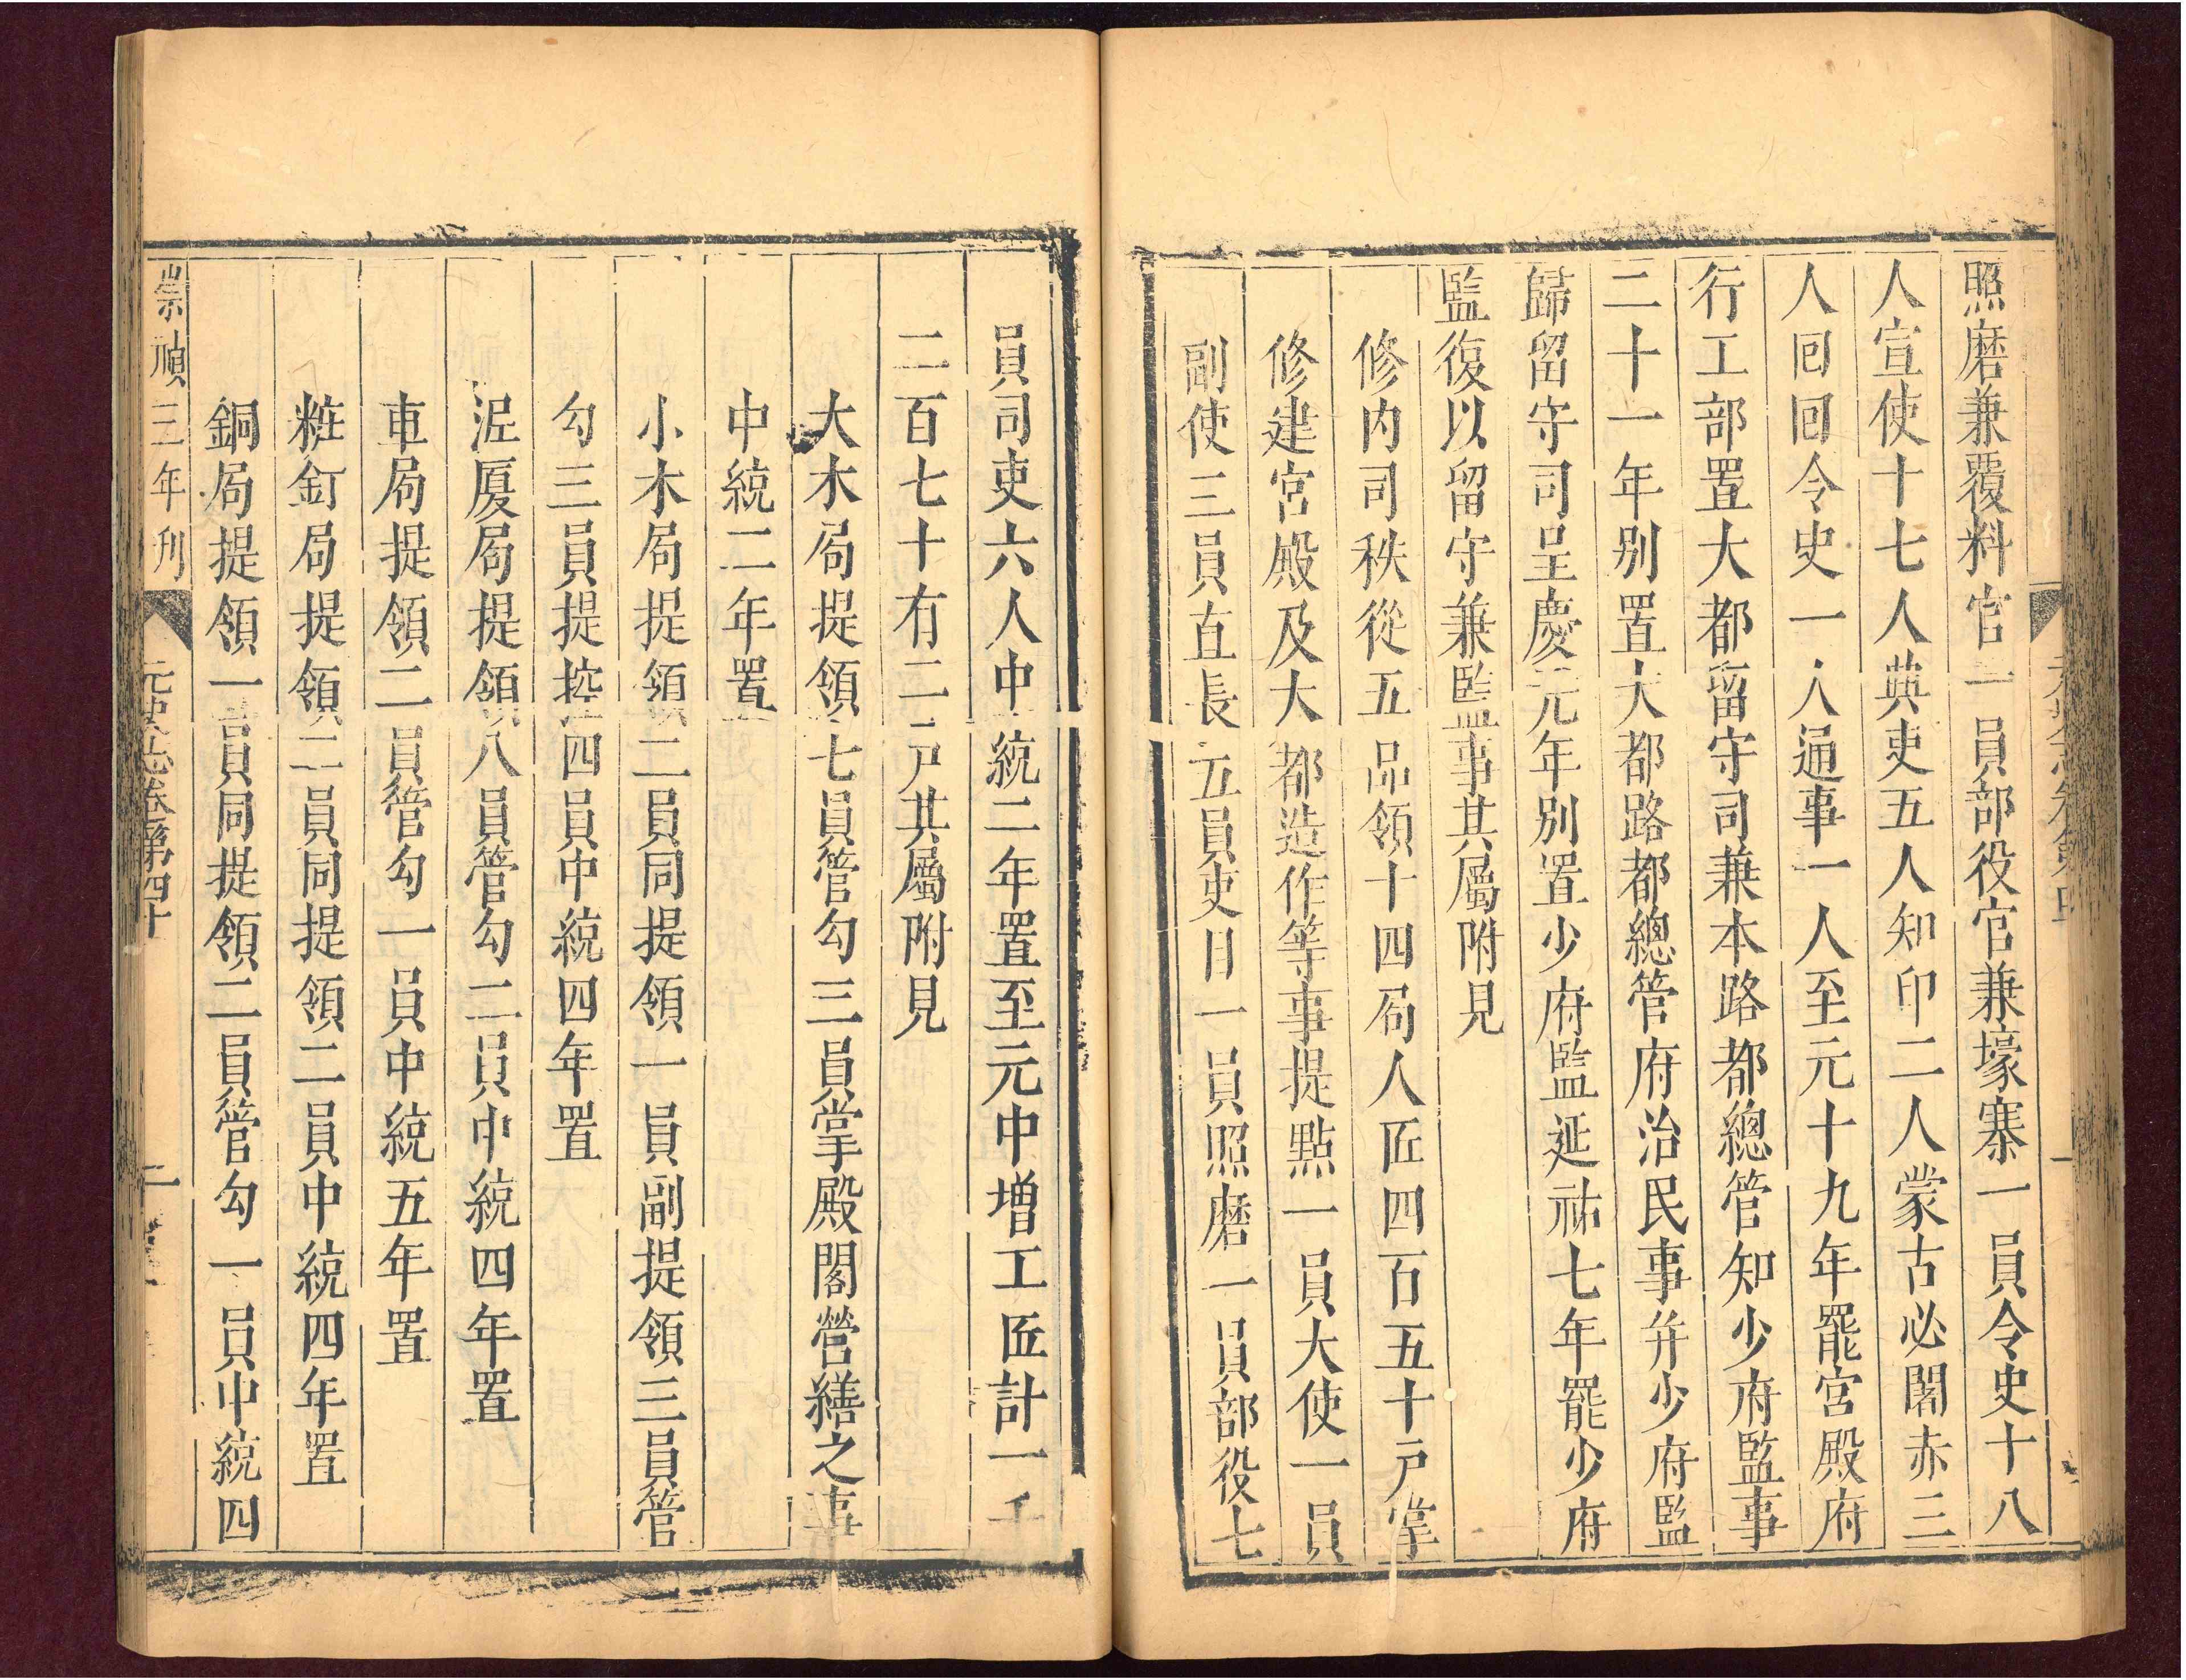 照磨兼覆料官一員部役官兼壕寨一員令史十八
人宣使十七人典吏五人知印二人蒙古必闍赤三
人回回令史一人通事一人至元十九年罷宮殿府
行工部置大都留守司兼本路都總管知少府監事
二十一年别置大都路都總管府治民事并少府監
歸留守司呈慶元年別置少府監延祐七年罷少府
監復以留守兼監事其屬附見
修内司秩從五品領十四局人匠四百五十戸掌
修建宮殿及大都造作等事提點一員大使一員
副使三員直長五員吏目一員照磨一員部役七
員司吏六人中統二年置至元中增工匠計一千
二百七十有二戸其屬附見
大木局提領七員管勾三員掌殿閣營繕之事
中統二年置
小木局提領二員同提領一員副提領三員管
勾三員提控四員中統四年置
泥厦局提領八員管勾二員中統四年置
車局提領二員管勾一員中統五年置
粧釘局提領二員同提領二員中統四年置
銅局提領一員同提領二員管勾一員中統四
崇禎三年刋 元史志卷第四十 二